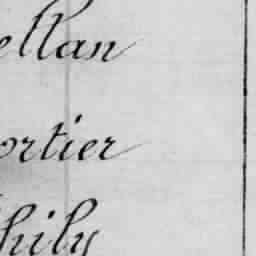 ellan
ortier
hily